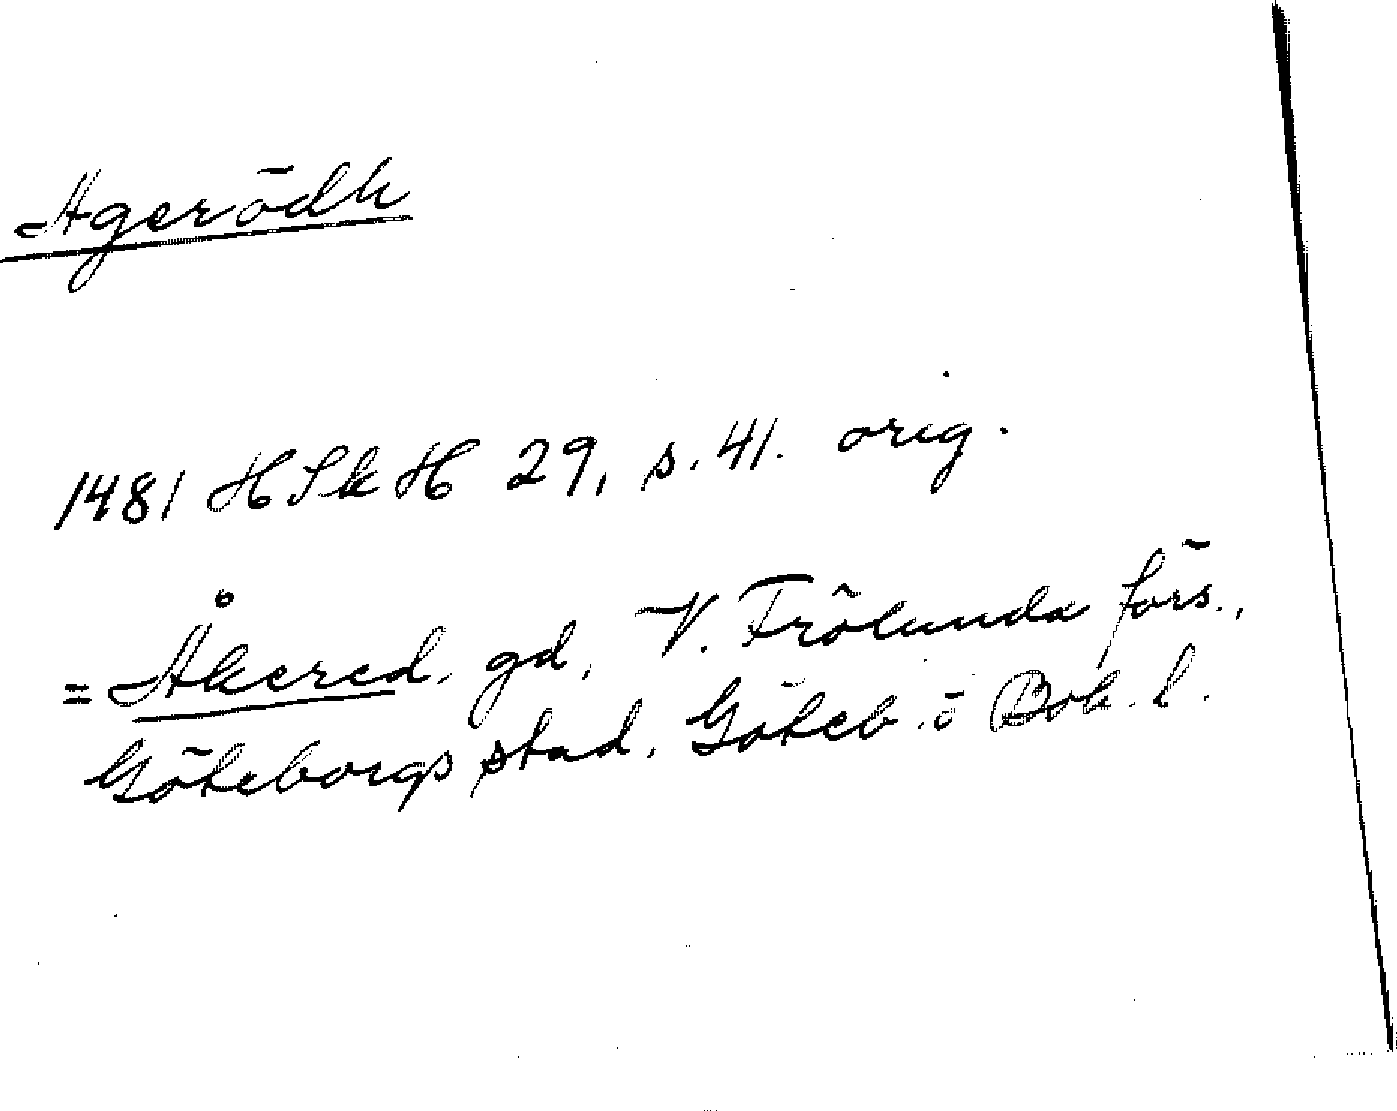 Agerödh
1481 HSkH 29, s. 41. orig.
= Åkered, gd, V. Frölunda förs.,
Göteborgs stad, Göteb. o Boh. l.